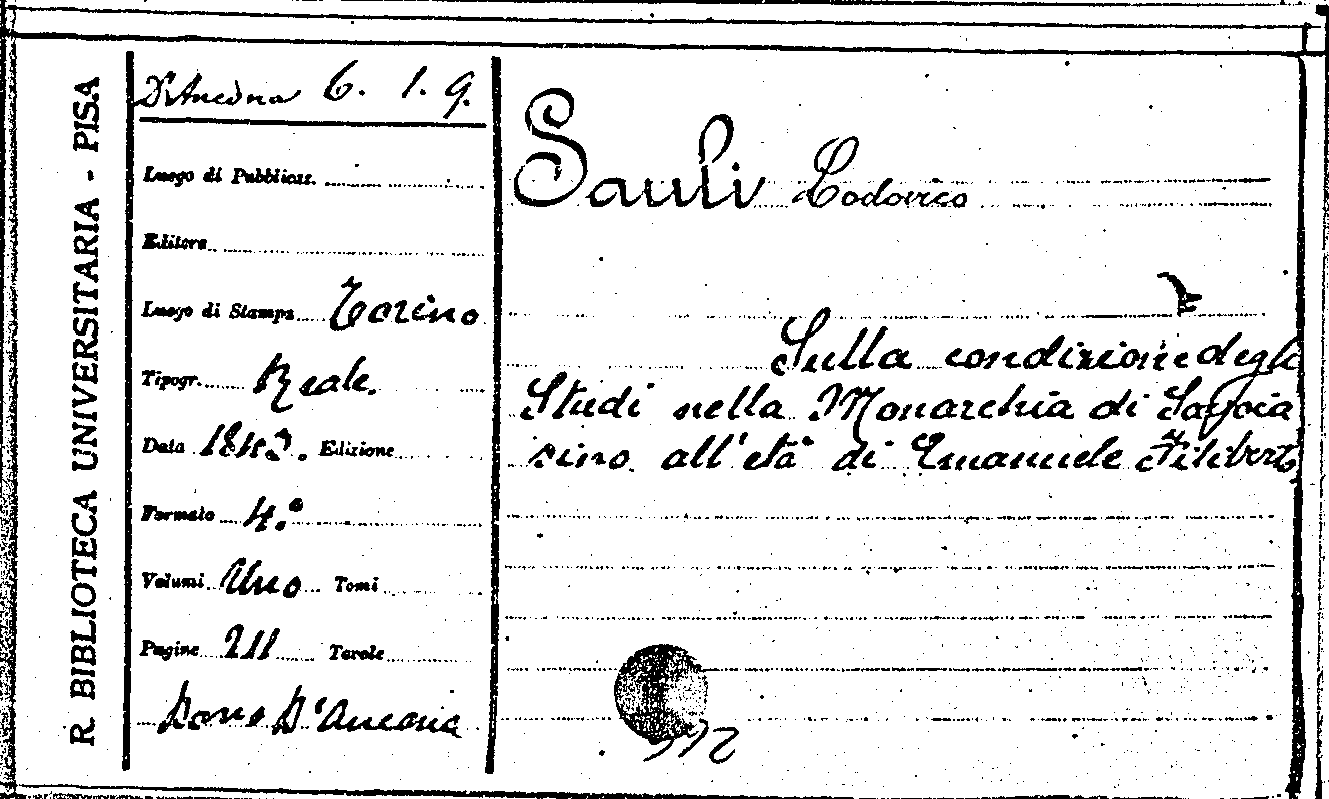 R. BIBLIOTECA UNIVERSITARIA - PISA
D'Ancona 6. 1. 9.
Luogo di Pubblicaz.
Editore
Luogo di Stampa Torino
Tipogr. Reale.
Data 1843. Edizione
Formato 4.°
Volumi Uno Tomi
Pagine 211 Tavole
Dono D'Ancona
Sauli Lodovico
Sulla condizione degli
Studi nella Monarchia di Savoia
sino all'età di Emanuele Filiberto